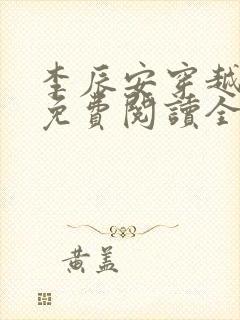 李辰安穿越
免費閱讀全
黃蓋